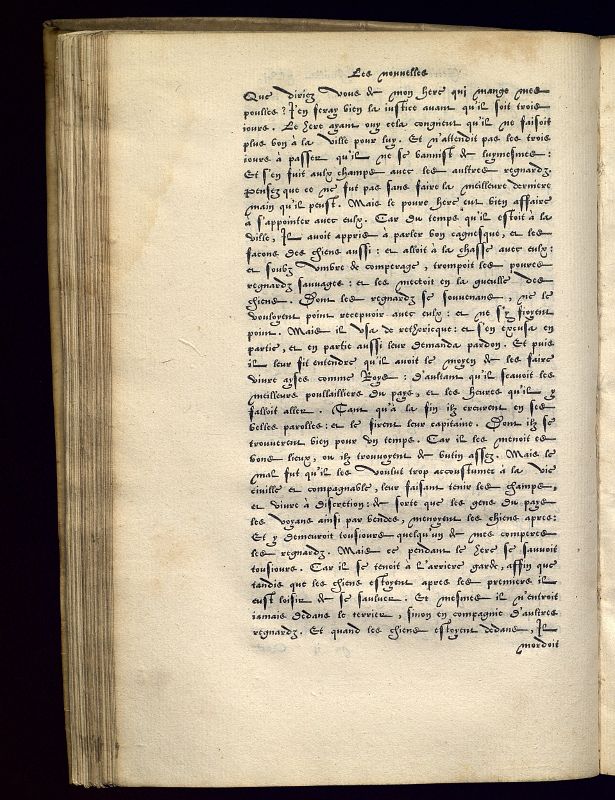 Les nouuelles
Que diriez vous de mon here qui mange mes
poulles? J'en feray bien la iustice auant qu'il soit trois
iours. Le here ayant ouy cela congneut qu'il ne faisoit
plus bon à la ville pour luy. Et n'attendit pas les trois
iours à passer qu'il ne se bannist de luymesmes:
Et s'en fuit aulx champs auec les aultres regnardz.
Pensez que ce ne fut pas sans faire la meilleure derniere
main qu'il peust. Mais le poure here eut bien affaire
à s'appointer auec eulx. Car du temps qu'il estoit à la
ville, Il auoit appris à parler bon cagnesque, et les
facons des chiens aussi: et alloit à la chasse auec eulx:
et soubz vmbre de comperage, trompoit les poures
regnardz sauuages: et les mectoit en la gueulle des
chiens. Dont les regnardz se souuenans, ne le
vouloyent point recepuoir auec eulx: et ne s'y fioyent
point. Mais il vsa de rethoricque: et s'en excusa en
partie, et en partie aussi leur demanda pardon. Et puis
il leur fit entendre qu'il auoit le moyen de les faire
viure ayses comme Roys: d'autant qu'il scauoit les
meilleurs poullailliers du pays, et les heures qu'il y
falloit aller. Tant qu'à la fin ilz creurent en ses
belles parolles: et le firent leur capitaine. Dont ilz se
trouuerent bien pour vn temps. Car il les menoit es
bons lieux, ou ilz trouuoyent de butin assez. Mais le
mal fut qu'il les voulut trop accoustumer à la vie
ciuille et compagnable, leur faisant tenir les champs,
et viure à discretion: de sorte que les gens du pays
les voyans ainsi par bendes, menoyent les chiens apres:
Et y demeuroit tousiours quelqu'un de mes comperes
les regnardz. Mais ce pendant le here se sauuoit
tousiours. Car il se tenoit à l'arriere garde, affin que
tandis que les chiens estoyent apres les premiers il
eust loisir de se sauluer. Et mesmes il n'entroit
iamais dedans le terrier, sinon en compagnie d'aultres
regnardz. Et quand les chiens estoyent dedans, Il
mordoit